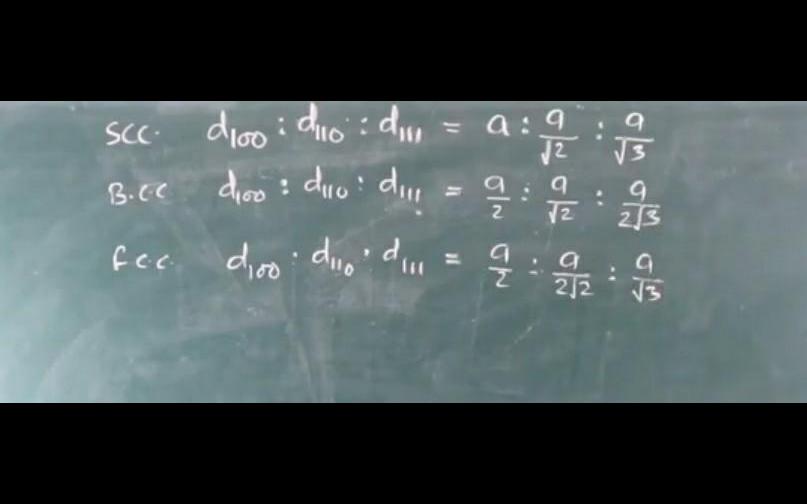 SCC. d₁₀₀ : d₁₁₀ : d₁₁₁ = a : a/√2 : a/√3
B.C.C d₁₀₀ : d₁₁₀ : d₁₁₁ = a/2 : a/√2 : a/2√3
f.c.c. d₁₀₀ : d₁₁₀ : d₁₁₁ = a/2 : a/2√2 : a/√3